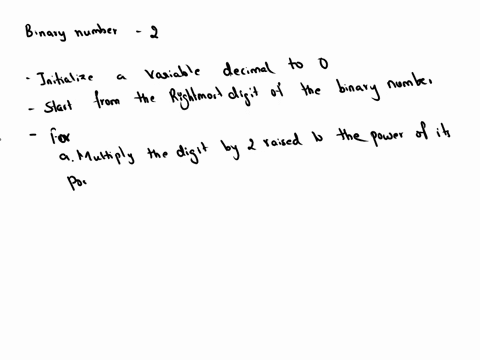 Binary number - 2
- Initialize a variable decimal to 0
- Start from the Rightmost digit of the binary number.
- For
a. Multiply the digit by 2 raised to the power of its
Pos